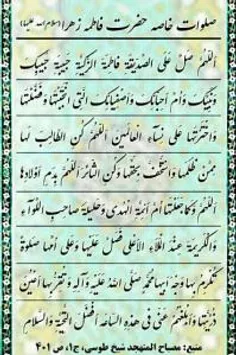 صلوات خاصه حضرت فاطمه زهرا (سلام الله علیها)
اَللّهُمَّ صَلِّ عَلَی الصِّدّیقَةِ فاطِمَةَ الزَّکِیَّةِ حَبیبَةِ حَبیبِکَ
وَنَبِیِّکَ وَاُمِّ اَحِبّائِکَ وَاَصْفِیائِکَ الَّتِی انْتَجَبْتَها وَفَضَّلْتَها
وَاخْتَرْتَها عَلی نِسآءِ الْعالَمینَ اَللّهُمَّ کُنِ الطّالِبَ لَها
مِمَّنْ ظَلَمَها وَاسْتَخَفَّ بِحَقِّها وَکُنِ الثّائِرَ اَللّهُمَّ بِدَمِ اَوْلادِها
اَللّهُمَّ وَکَما جَعَلْتَها اُمَّ اَئِمَّةِ الْهُدی وَحَلیلَةَ صاحِبِ اللِّوآءِ
وَالْکَریمَةَ عِنْدَ الْمَلَاءِ الْاَعْلی فَصَلِّ عَلَیْها وَعَلی اُمِّها صَلوةً
تُکْرِمُ بِها وَجْهَ اَبیها مُحَمَّدٍ صَلَّی اللهُ عَلَیْهِ وَآلِهِ وَتُقِرُّ بِها اَعْیُنَ
ذُرِّیَّتِها وَاَبْلِغْهُمْ عَنّی فی هذِهِ السّاعَةِ اَفْضَلَ التَّحِیَّةِ وَالسَّلامِ
منبع: مصباح المتهجد شیخ طوسی، ج۱، ص ۴۰۱